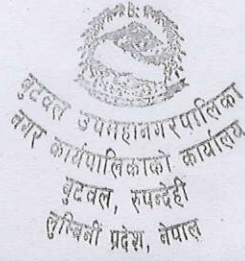 बुटवल उपमहानगरपालिका
नगर कार्यपालिकाको कार्यालय
बुटवल, रुपन्देही
लुम्बिनी प्रदेश, नेपाल